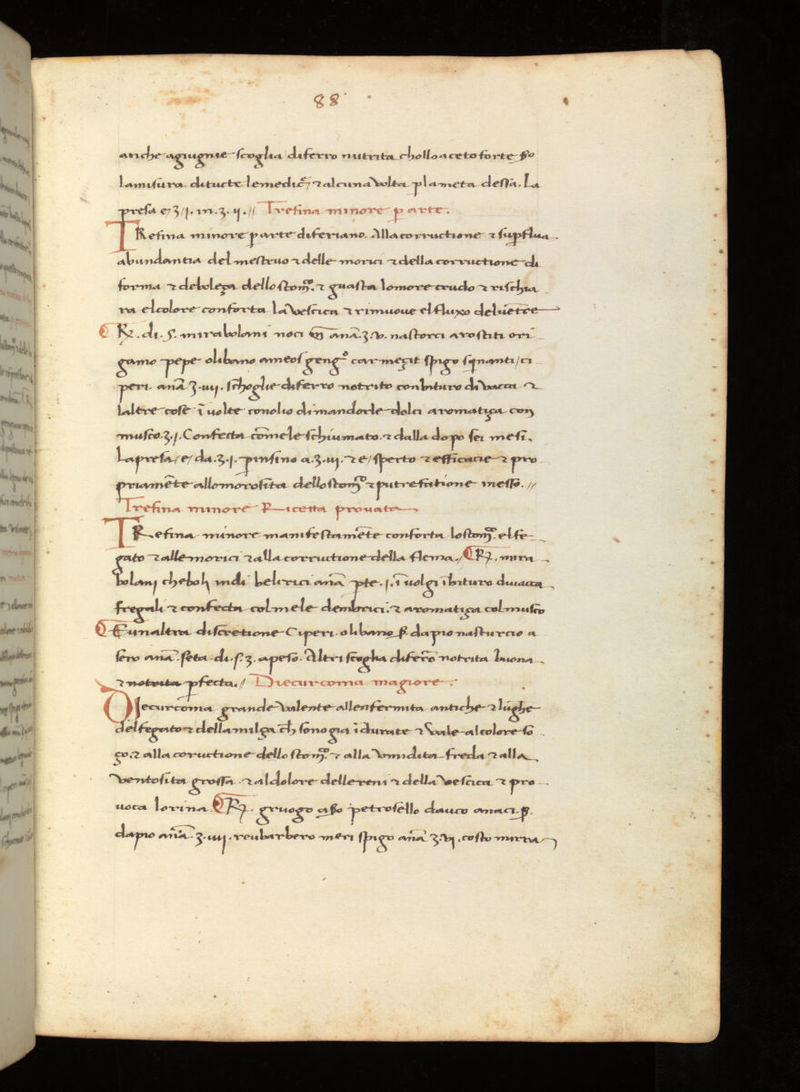 88
anche agiugnie scoglia diferro nutrita cholloaceto forte
lamisura ditucte lemedic̄ ⁊ alcuna volta p lameta dessa. La
presa eʒ /j. in .ʒ. ij. // Trefina minore p arte.
TRefina minore p arte diferiano. Alla corructione ⁊ sup̄flua
abundantia del mestruo ⁊ delle morici ⁊ della corructione di
forma ⁊ deboleça dello stom̄. ⁊ guasta lomore crudo ⁊ rischia
ra elcolore conforta la vescica ⁊ rimuoue elfluxo deluētre
R. di. mirabolani noci anā. ʒ. v. nastorci arostiti ori
gamo pepe olibano ameos geng̊ carmeçit spigo sq̄nanti / ci
peri. anā ʒ. iiij. schoglie diferro notrito conbituro di vacca ⁊
laltre cose ī uolte conolio dimandorle dolci aromatiça con
musco. ʒ. j. Confecta cōmele schiumato. ⁊ dalla dopo sei mesi.
La presa / e / da. ʒ. j. p insino a. ʒ. iij. ⁊ e / sperto ⁊ efficacie ⁊ pro
priamēte allomorosita dello stom̄ ⁊ putrefatione inesso. //
Trefina minore Ricetta prouata
TRefina minore manifestamēte conforta lostom̄. elfe
gato ⁊ allemorici ⁊ alla corructione della flema. R. mira
bolani chebolj indi belirici anā pte. j. ī uolgi ībituro diuacca
fregali ⁊ confecta colmele dembrici. ⁊ aromatiça colmusco
E unaltra discretione Ciperi. olibano. dapio nasturcio a
sero anā. seta. di. ʒ. apeso. Altri scoglia difer̄o notrita buona
⁊ notrita pfecta. // Diecurcoma magiore.
DIecurcoma grande valente allenfermita antiche ⁊ lūghe
delfegato ⁊ della milça ch̄ sono gia īdurate ⁊ vale alcolore so
ço. ⁊ alla coructione dello stom̄. ⁊ alla vmidita freda ⁊ alla
ventosita grossa ⁊ aldolore dellereni ⁊ della vescica ⁊ pro
uoca lorina. R. gruogo petrosello dauco anaci
dapio anā. ʒ. iiij. reubarbero meri spigo anā ʒ. vj. costo mirra